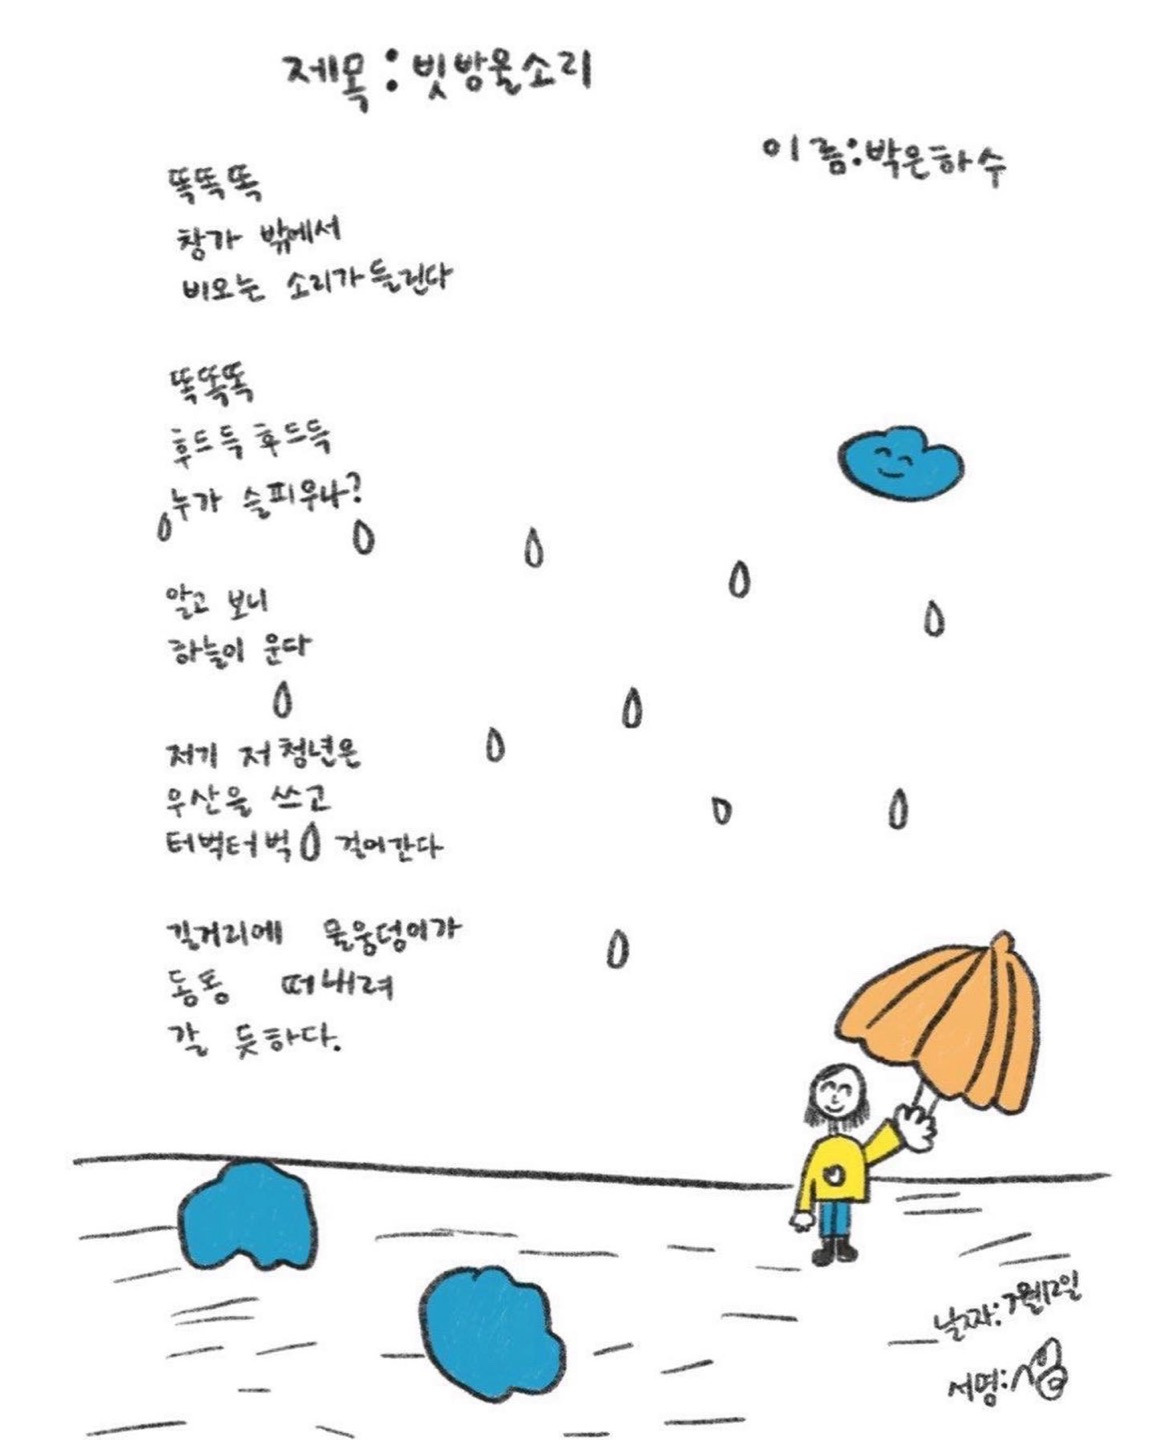 제목:빗방울소리
이름:박은하수
똑똑똑
창가 밖에서
비오는 소리가 들린다
똑똑똑
후드득 후드득
누가 슬피우나?
알고 보니
하늘이 운다
저기 저 청년은
우산을 쓰고
터벅터벅 걸어간다
길거리에 물웅덩이가
동동 떠내려
갈 듯하다.
날짜:7월12일
서명: